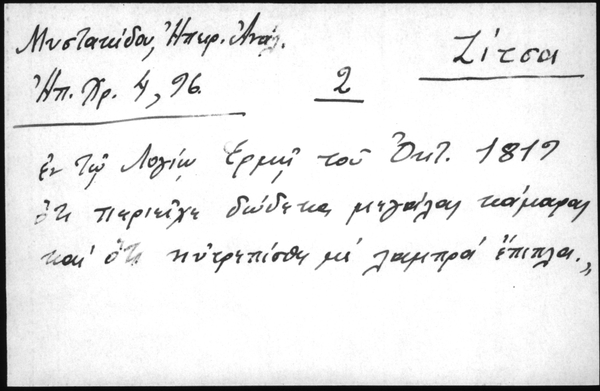 Μυστακίδου, Ἠπειρ. Ἀνάλ.
Ζίτσα
Ἠπ. Χρ. 4, 96.
2
ἐν τῷ Λογίῳ Ἑρμῇ τοῦ Ὀκτ. 1817
ὅτι περιεῖχε δώδεκα μεγάλας κάμαρας
καί ὅτι ηὐτρεπίσθη μέ λαμπρά ἔπιπλα.„